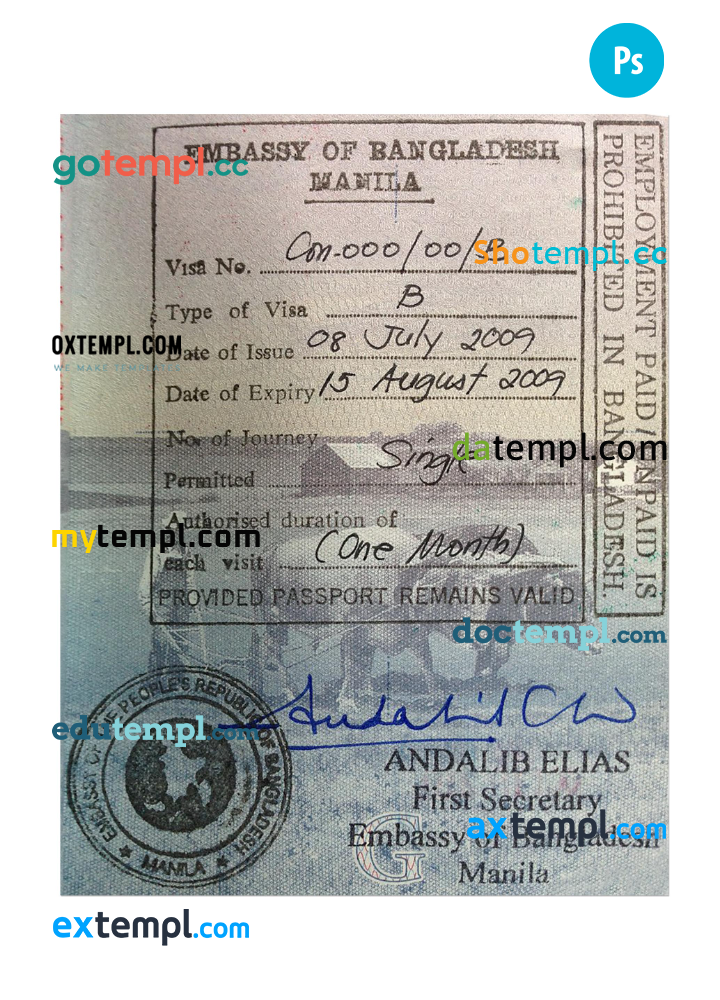 Ps
EMBASSY OF BANGLADESH
MANILA
gotempl.cc
Visa No. Con-000/00/B
Shotempl.cc
Type of Visa B
OXTEMPL.COM
WE MAKE TEMPLATES
Date of Issue 08 July 2009
Date of Expiry 15 August 2009
No. of Journey
Permitted Single
datempl.com
Authorised duration of
each visit (One Month)
mytempl.com
PROVIDED PASSPORT REMAINS VALID
EMPLOYMENT PAID / UNPAID IS
PROHIBITED IN BANGLADESH.
doctempl.com
EMBASSY OF THE PEOPLE'S REPUBLIC OF BANGLADESH
MANILA
edutempl.com
ANDALIB ELIAS
First Secretary
Embassy of Bangladesh
Manila
axtempl.com
G
extempl.com